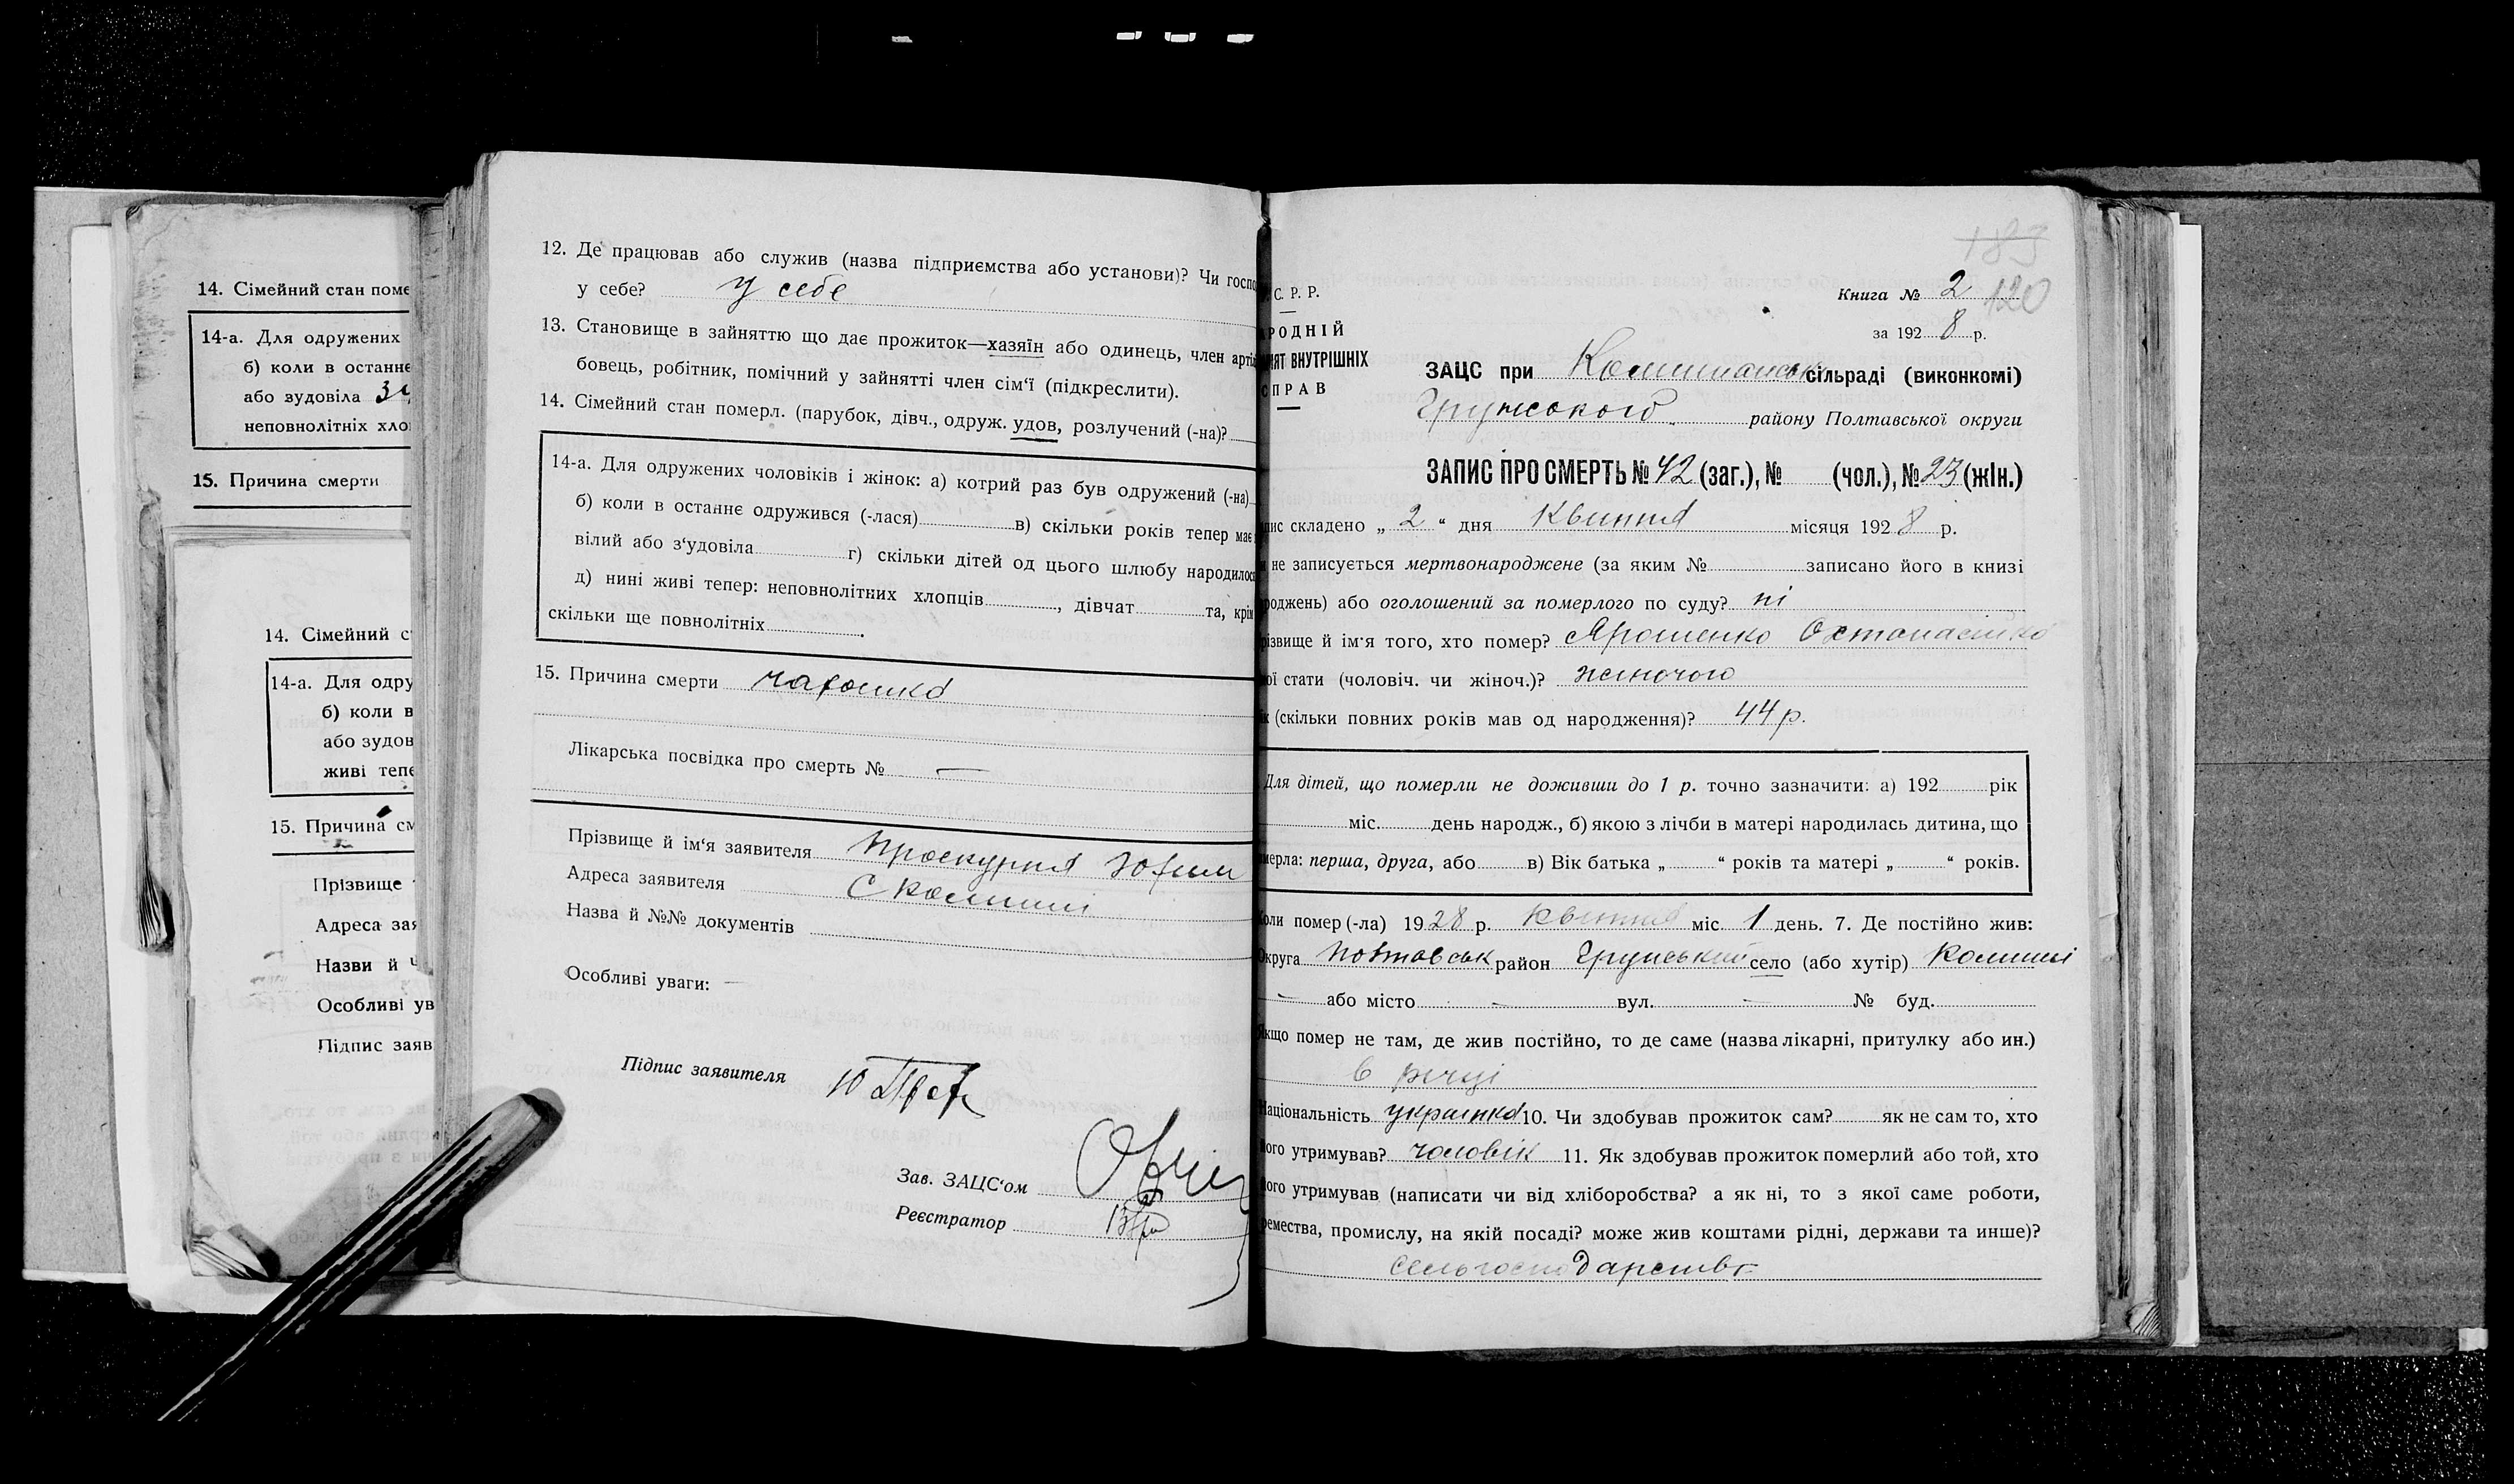 14. Сімейний стан поме
14-а. Для одружених
б) коли в останнє
або зудовіла
неповнолітніх хло
15. Причина смерти
14. Сімейний с
14-а. Для одру
б) коли в
або зудов
живі тепе
15. Причина см
Прізвище
Адреса зая
Назви й
Особливі ув
Підпис заяв
12. Де працював або служив (назва підприємства або установи)? Чи госпо
у себе? у себе
13. Становище в зайняттю що дає прожиток—хазяїн або одинець, член арті
бовець, робітник, помічний у зайнятті член сім'ї (підкреслити).
14. Сімейний стан померл. (парубок, дівч., одруж. удов, розлучений (-на)?
14-а. Для одружених чоловіків і жінок: а) котрий раз був одружений (-на)
б) коли в останнє одружився (-лася) в) скільки років тепер має
вілий або з'удовіла г) скільки дітей од цього шлюбу народилося
д) нині живі тепер: неповнолітних хлопців , дівчат та, крім
скільки ще повнолітніх .
15. Причина смерти
Лікарська посвідка про смерть № —
Прізвище й ім'я заявителя Проскурня Юхим
Адреса заявителя С Комиші
Назва й №№ документів
Особливі уваги: —
Підпис заявителя
Зав. ЗАЦС'ом
Реєстратор
183
120
С. Р. Р.
РОДНІЙ
ІЯТ ВНУТРІШНІХ
СПРАВ
Книга № 2
за 192 8 р.
ЗАЦС при Комишанськ сільраді (виконкомі)
Грунського району Полтавської округи
ЗАПИС ПРО СМЕРТЬ № 42 (заг.), № (чол.), № 23 (жін.)
пис складено „ 2 “ дня Квитня місяця 192 8 р.
не записується мертвонароджене (за яким № записано його в книзі
роджень) або оголошений за померлого по суду? ні
різвище й ім'я того, хто помер? Ярошенко
ої стати (чоловіч. чи жіноч.)? жіночого
к (скільки повних років мав од народження)? 44 р.
Для дітей, що померли не доживши до 1 р. точно зазначити: а) 192 рік
міс. день народж., б) якою з лічби в матері народилась дитина, що
мерла: перша, друга, або в) Вік батька „ “ років та матері „ “ років.
Коли помер (-ла) 19 28 р. Квитня міс. 1 день. 7. Де постійно жив:
Округа Повтавськ район Грунський село (або хутір) Комиші
— або місто — вул. — № буд.
Якщо помер не там, де жив постійно, то де саме (назва лікарні, притулку або ин.)
в речці
Національність українка 10. Чи здобував прожиток сам? як не сам то, хто
його утримував? чоловік 11. Як здобував прожиток померлий або той, хто
його утримував (написати чи від хліборобства? а як ні, то з якої саме роботи,
ремества, промислу, на якій посаді? може жив коштами рідні, держави та инше)?
сельгосподарство